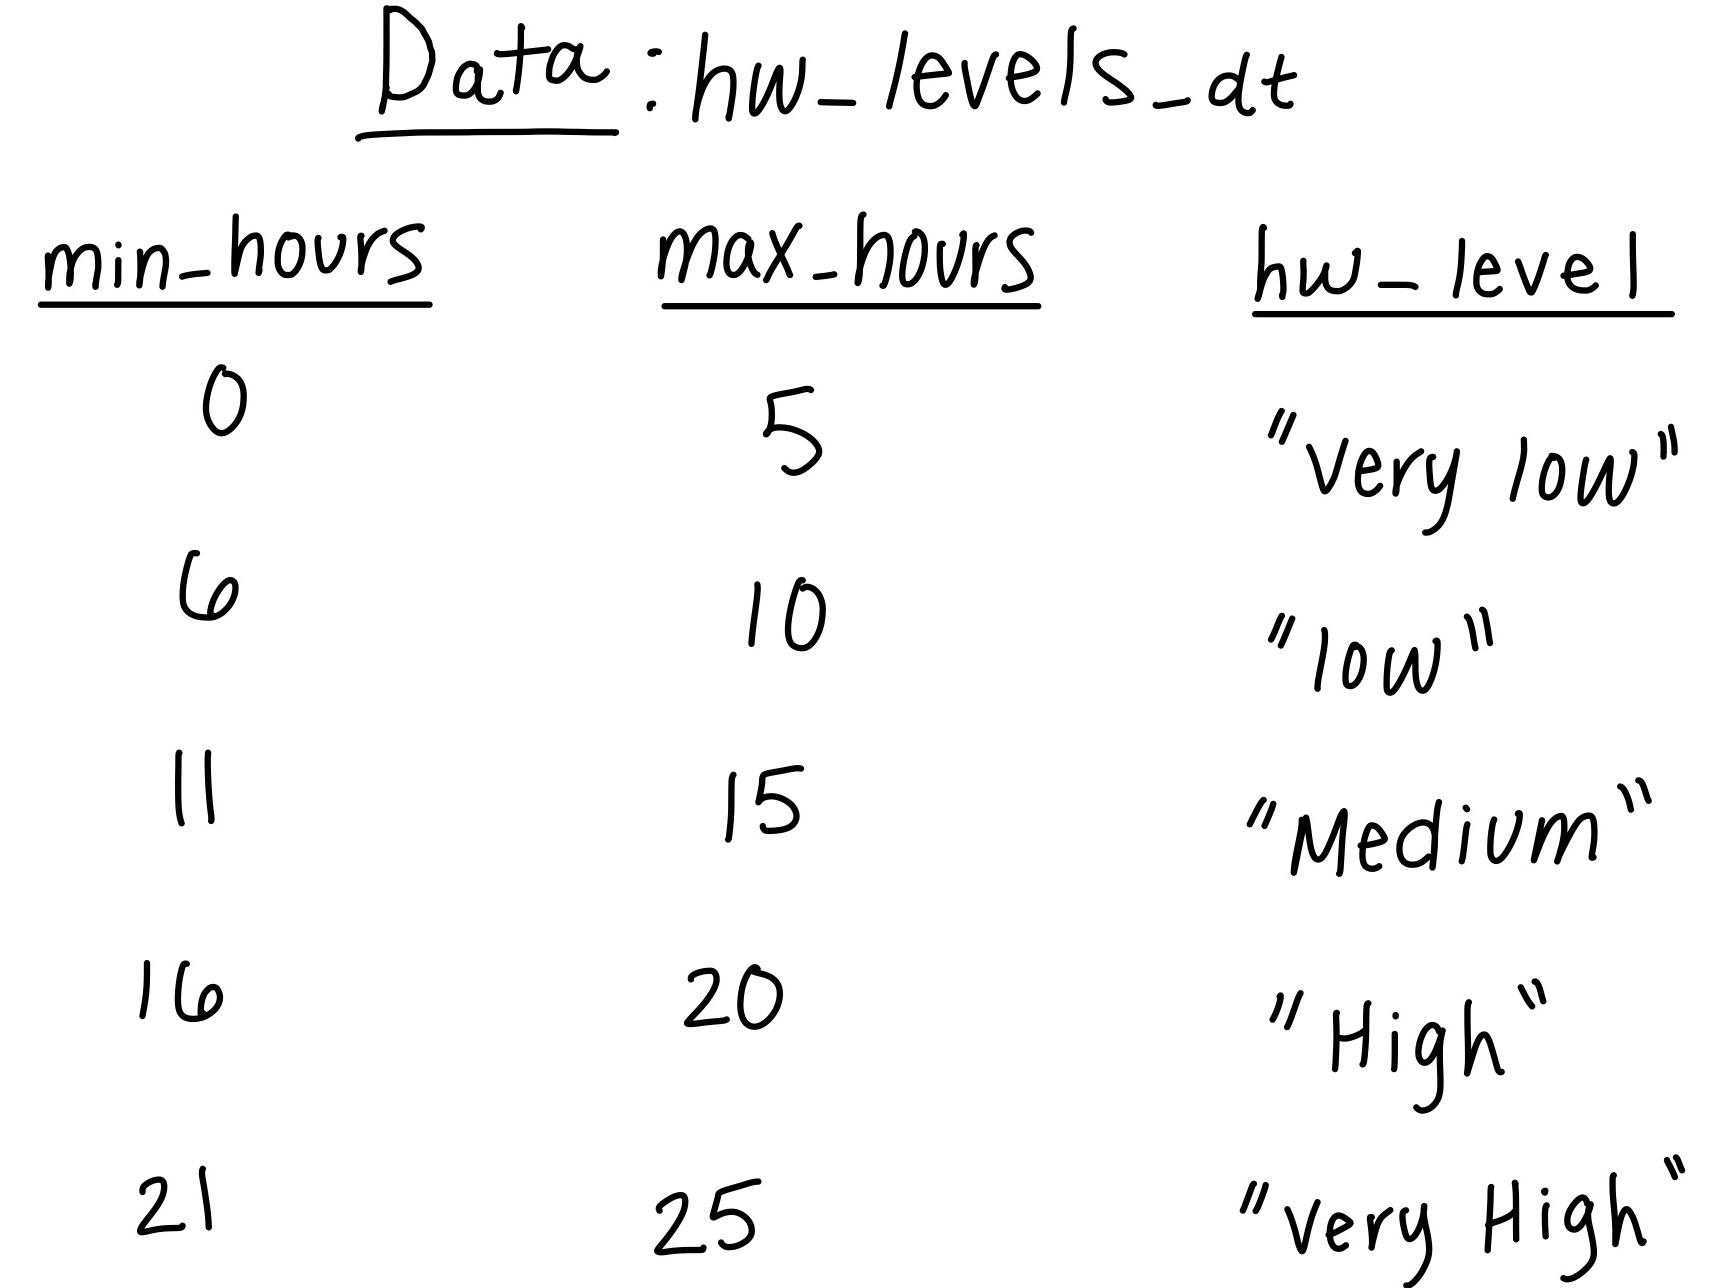 Data : hw_levels_dt
min_hours max_hours hw_level
0 5 "very low"
6 10 "low"
11 15 "Medium"
16 20 "High"
21 25 "very High"